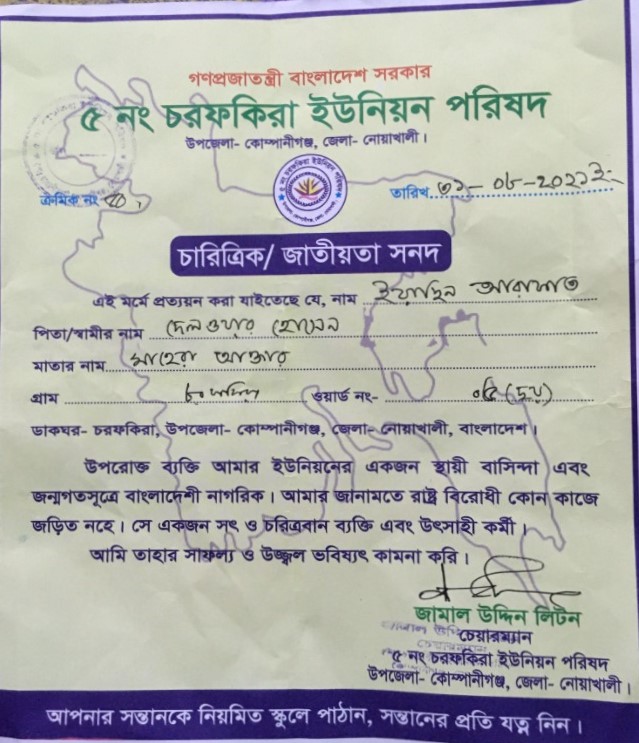 গণপ্রজাতন্ত্রী বাংলাদেশ সরকার
৫ নং চরফকিরা ইউনিয়ন পরিষদ
উপজেলা- কোম্পানীগঞ্জ, জেলা- নোয়াখালী।
ক্রমিক নং
তারিখ
চারিত্রিক/ জাতীয়তা সনদ
এই মর্মে প্রত্যয়ন করা যাইতেছে যে, নাম ইয়াছিন আরাফাত
পিতা/স্বামীর নাম দেলওয়ার হোসেন
মাতার নাম আক্তার
গ্রাম ওয়ার্ড নং- ০৫
ডাকঘর- চরফকিরা, উপজেলা- কোম্পানীগঞ্জ, জেলা- নোয়াখালী, বাংলাদেশ।
উপরোক্ত ব্যক্তি আমার ইউনিয়নের একজন স্থায়ী বাসিন্দা এবং
জন্মগতসূত্রে বাংলাদেশী নাগরিক। আমার জানামতে রাষ্ট্র বিরোধী কোন কাজে
জড়িত নহে। সে একজন সৎ ও চরিত্রবান ব্যক্তি এবং উৎসাহী কর্মী।
আমি তাহার সাফল্য ও উজ্জ্বল ভবিষ্যৎ কামনা করি।
জামাল উদ্দিন লিটন
চেয়ারম্যান
৫ নং চরফকিরা ইউনিয়ন পরিষদ
উপজেলা- কোম্পানীগঞ্জ, জেলা- নোয়াখালী।
আপনার সন্তানকে নিয়মিত স্কুলে পাঠান, সন্তানের প্রতি যত্ন নিন।